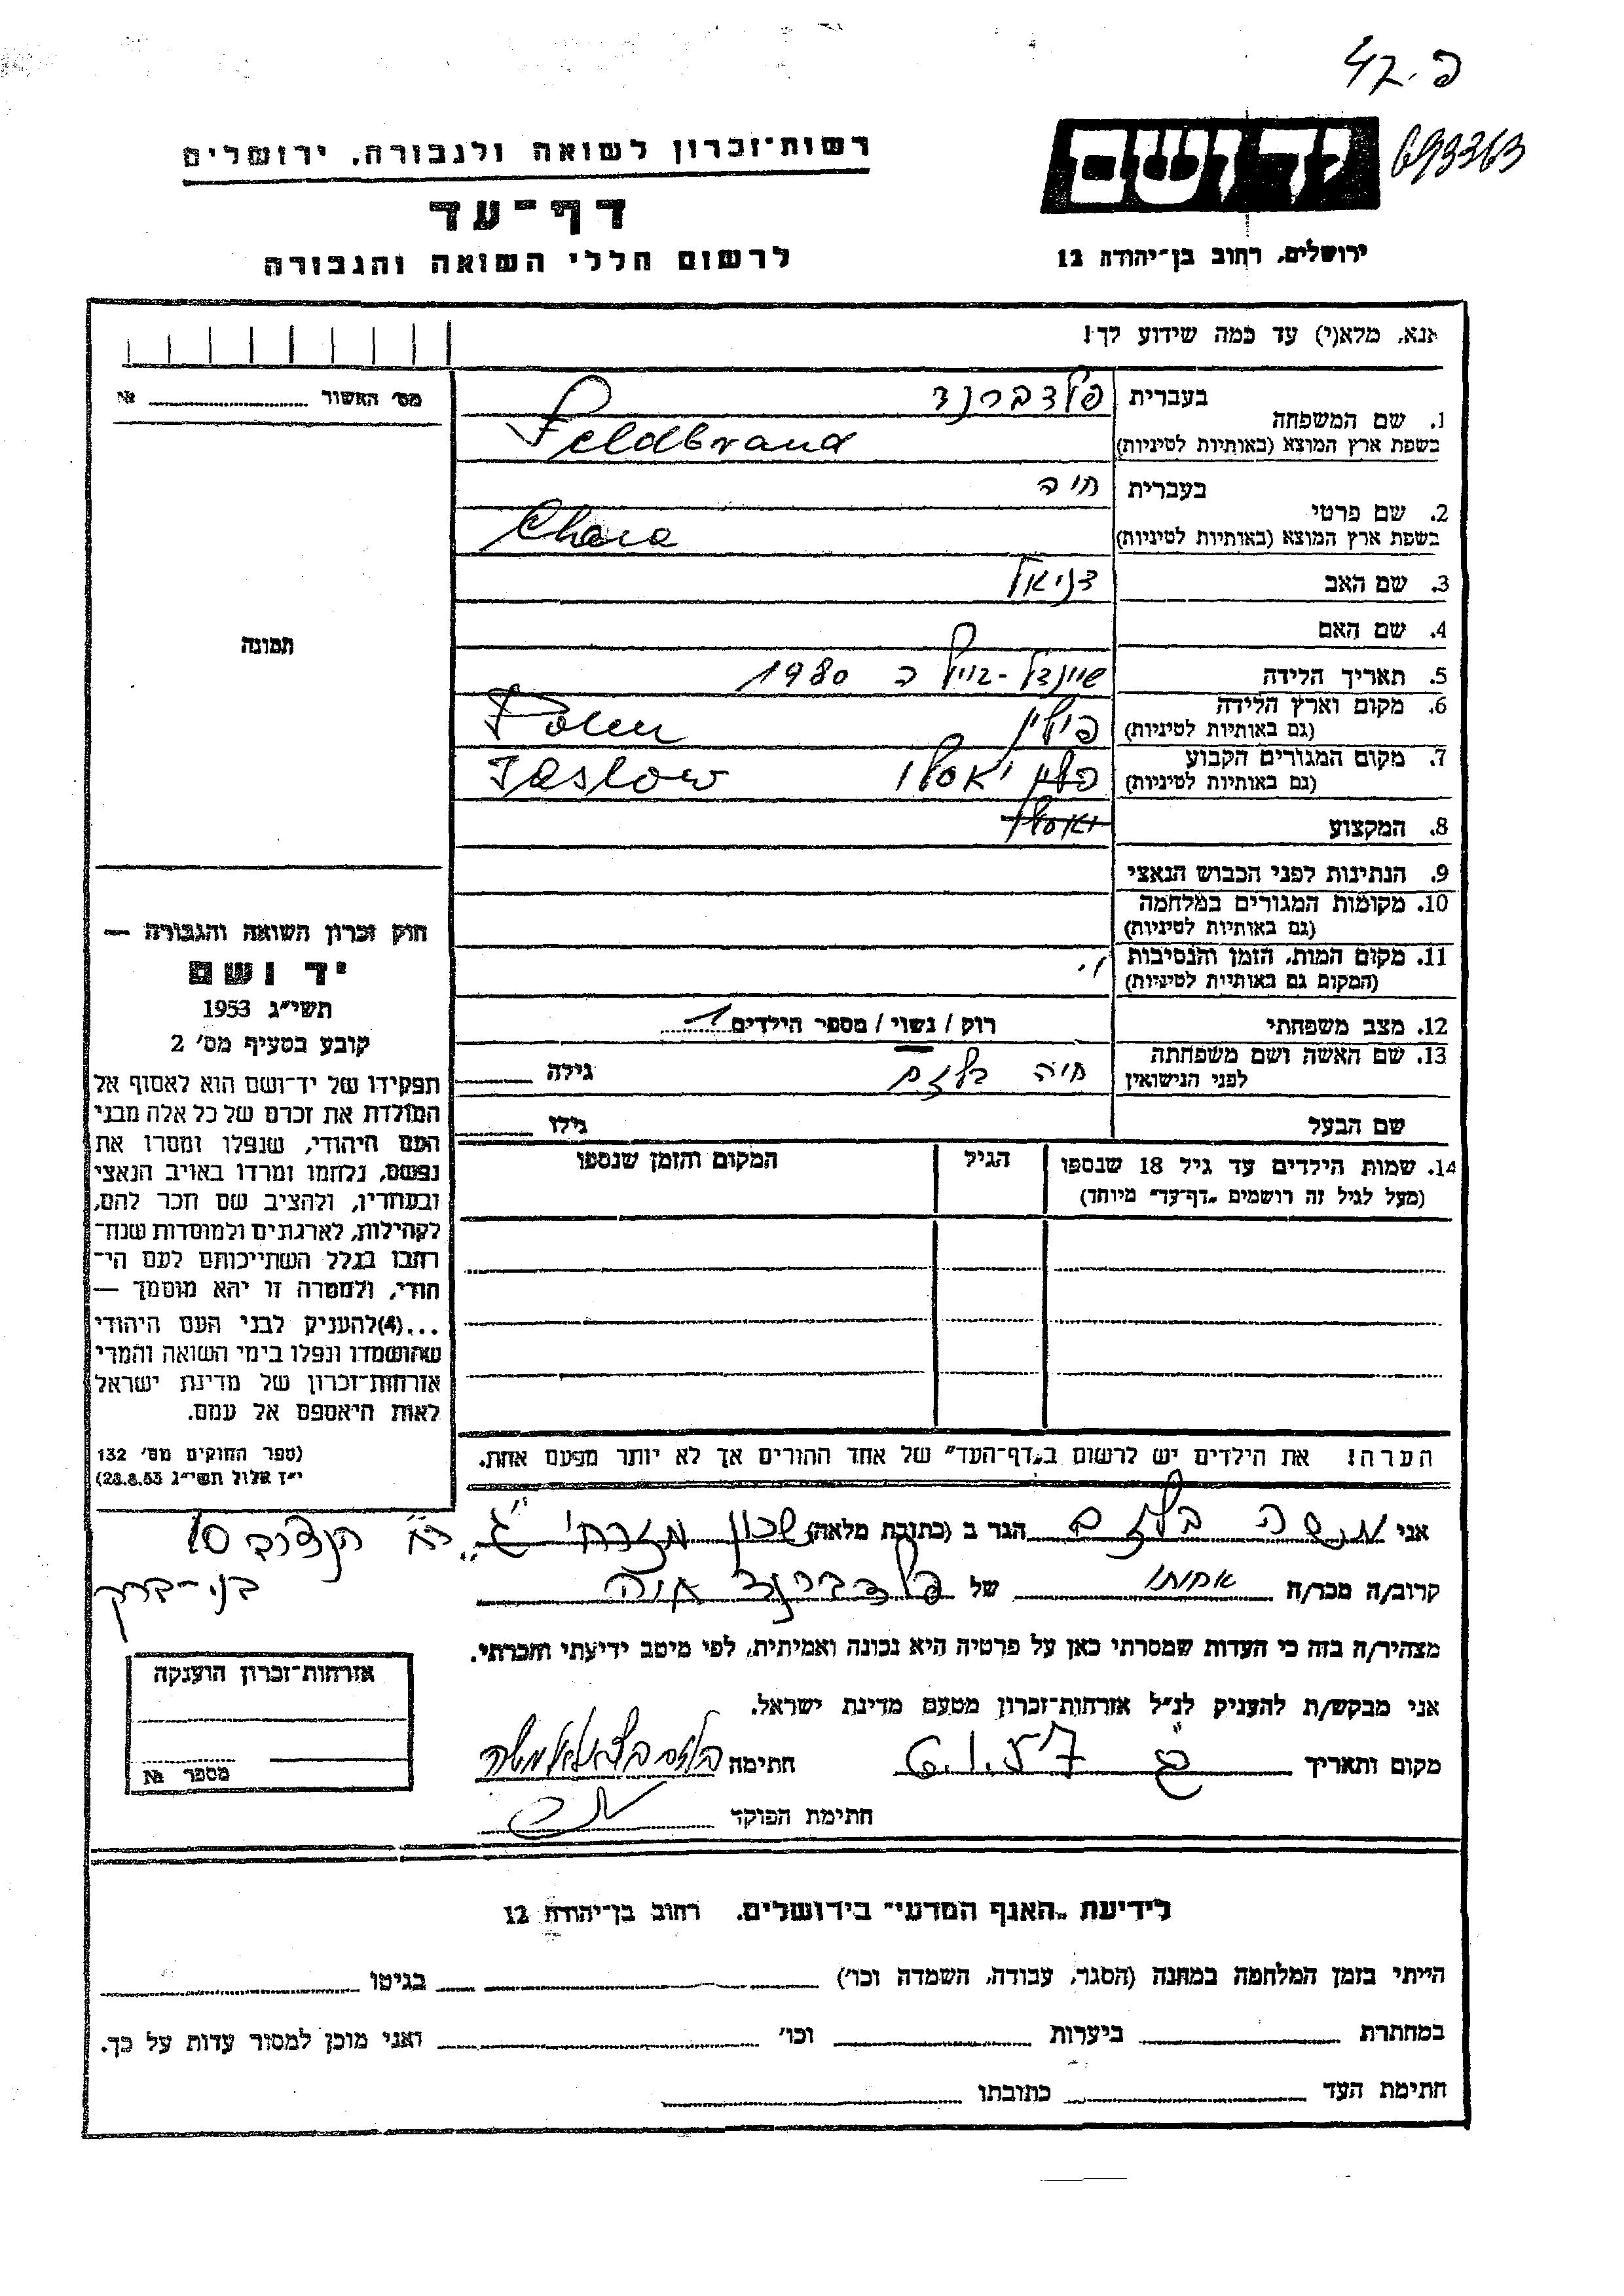 פ. 42
693363
יד ושם
רשות־זכרון לשואה ולגבורה, ירושלים
דף־עד
לרשום חללי השואה והגבורה
ירושלים, רחוב בן־יהודה 12
אנא, מלא(י) עד כמה שידוע לך!
מס' האשור № 
1. שם המשפחה בעברית פלדברנד
בשפת ארץ המוצא (באותיות לטיניות) Feldbrand
2. שם פרטי בעברית חיה
בשפת ארץ המוצא (באותיות לטיניות) Chaia
3. שם האב דניאל
4. שם האם
5. תאריך הלידה שיינדל - ב 1980
6. מקום וארץ הלידה פולין Polen
(גם באותיות לטיניות)
7. מקום המגורים הקבוע פולין יאסלו Jaslow
(גם באותיות לטיניות)
8. המקצוע יאסלו
9. הנתינות לפני הכבוש הנאצי
10. מקומות המגורים במלחמה
(גם באותיות לטיניות)
11. מקום המות, הזמן והנסיבות
(המקום גם באותיות לטיניות)
12. מצב משפחתי רוק / נשוי / מספר הילדים 1
13. שם האשה ושם משפחתה חיה בלזם גילה
לפני הנישואין
שם הבעל גילו
14. שמות הילדים עד גיל 18 שנספו הגיל המקום והזמן שנספו
(מעל לגיל זה רושמים „דף־עד" מיוחד)
תמונה
חוק זכרון השואה והגבורה —
יד ושם
תשי״ג 1953
קובע בסעיף מס' 2
תפקידו של יד־ושם הוא לאסוף אל
המולדת את זכרם של כל אלה מבני
העם היהודי, שנפלו ומסרו את
נפשם, נלחמו ומרדו באויב הנאצי
ובעוזריו, ולהציב שם וזכר להם,
לקהילות, לארגונים ולמוסדות שנח־
רחבו בגלל השתייכותם לעם הי־
הודי, ולמטרה זו יהא מוסמך —
...(4) להעניק לבני העם היהודי
שהושמדו ונפלו בימי השואה והמרי
אזרחות־זכרון של מדינת ישראל
לאות היאספם אל עמם.
(ספר החוקים מס' 132
י״ז אלול תשי״ג 28.8.53)
הערה! את הילדים יש לרשום ב„דף־העד" של אחד ההורים אך לא יותר מפעם אחת.
אני משה בלזם הגר ב (כתובת מלאה) שכון מזרחי ג' 10
בני־ברק
קרוב/ה מכר/ה אחותו של פלדברנד חיה
מצהיר/ה בזה כי העדות שמסרתי כאן על פרטיה היא נכונה ואמיתית, לפי מיטב ידיעתי והכרתי.
אני מבקש/ת להעניק לנ״ל אזרחות־זכרון מטעם מדינת ישראל.
מקום ותאריך חתימה
חתימת הפוקד
אזרחות־זכרון הוענקה
מספר №
לידיעת „האגף המדעי" בירושלים, רחוב בן־יהודה 12
הייתי בזמן המלחמה במחנה (הסגר, עבודה, השמדה וכו') בגיטו
במחתרת ביערות וכו' ואני מוכן למסור עדות על כך.
חתימת העד כתובתו